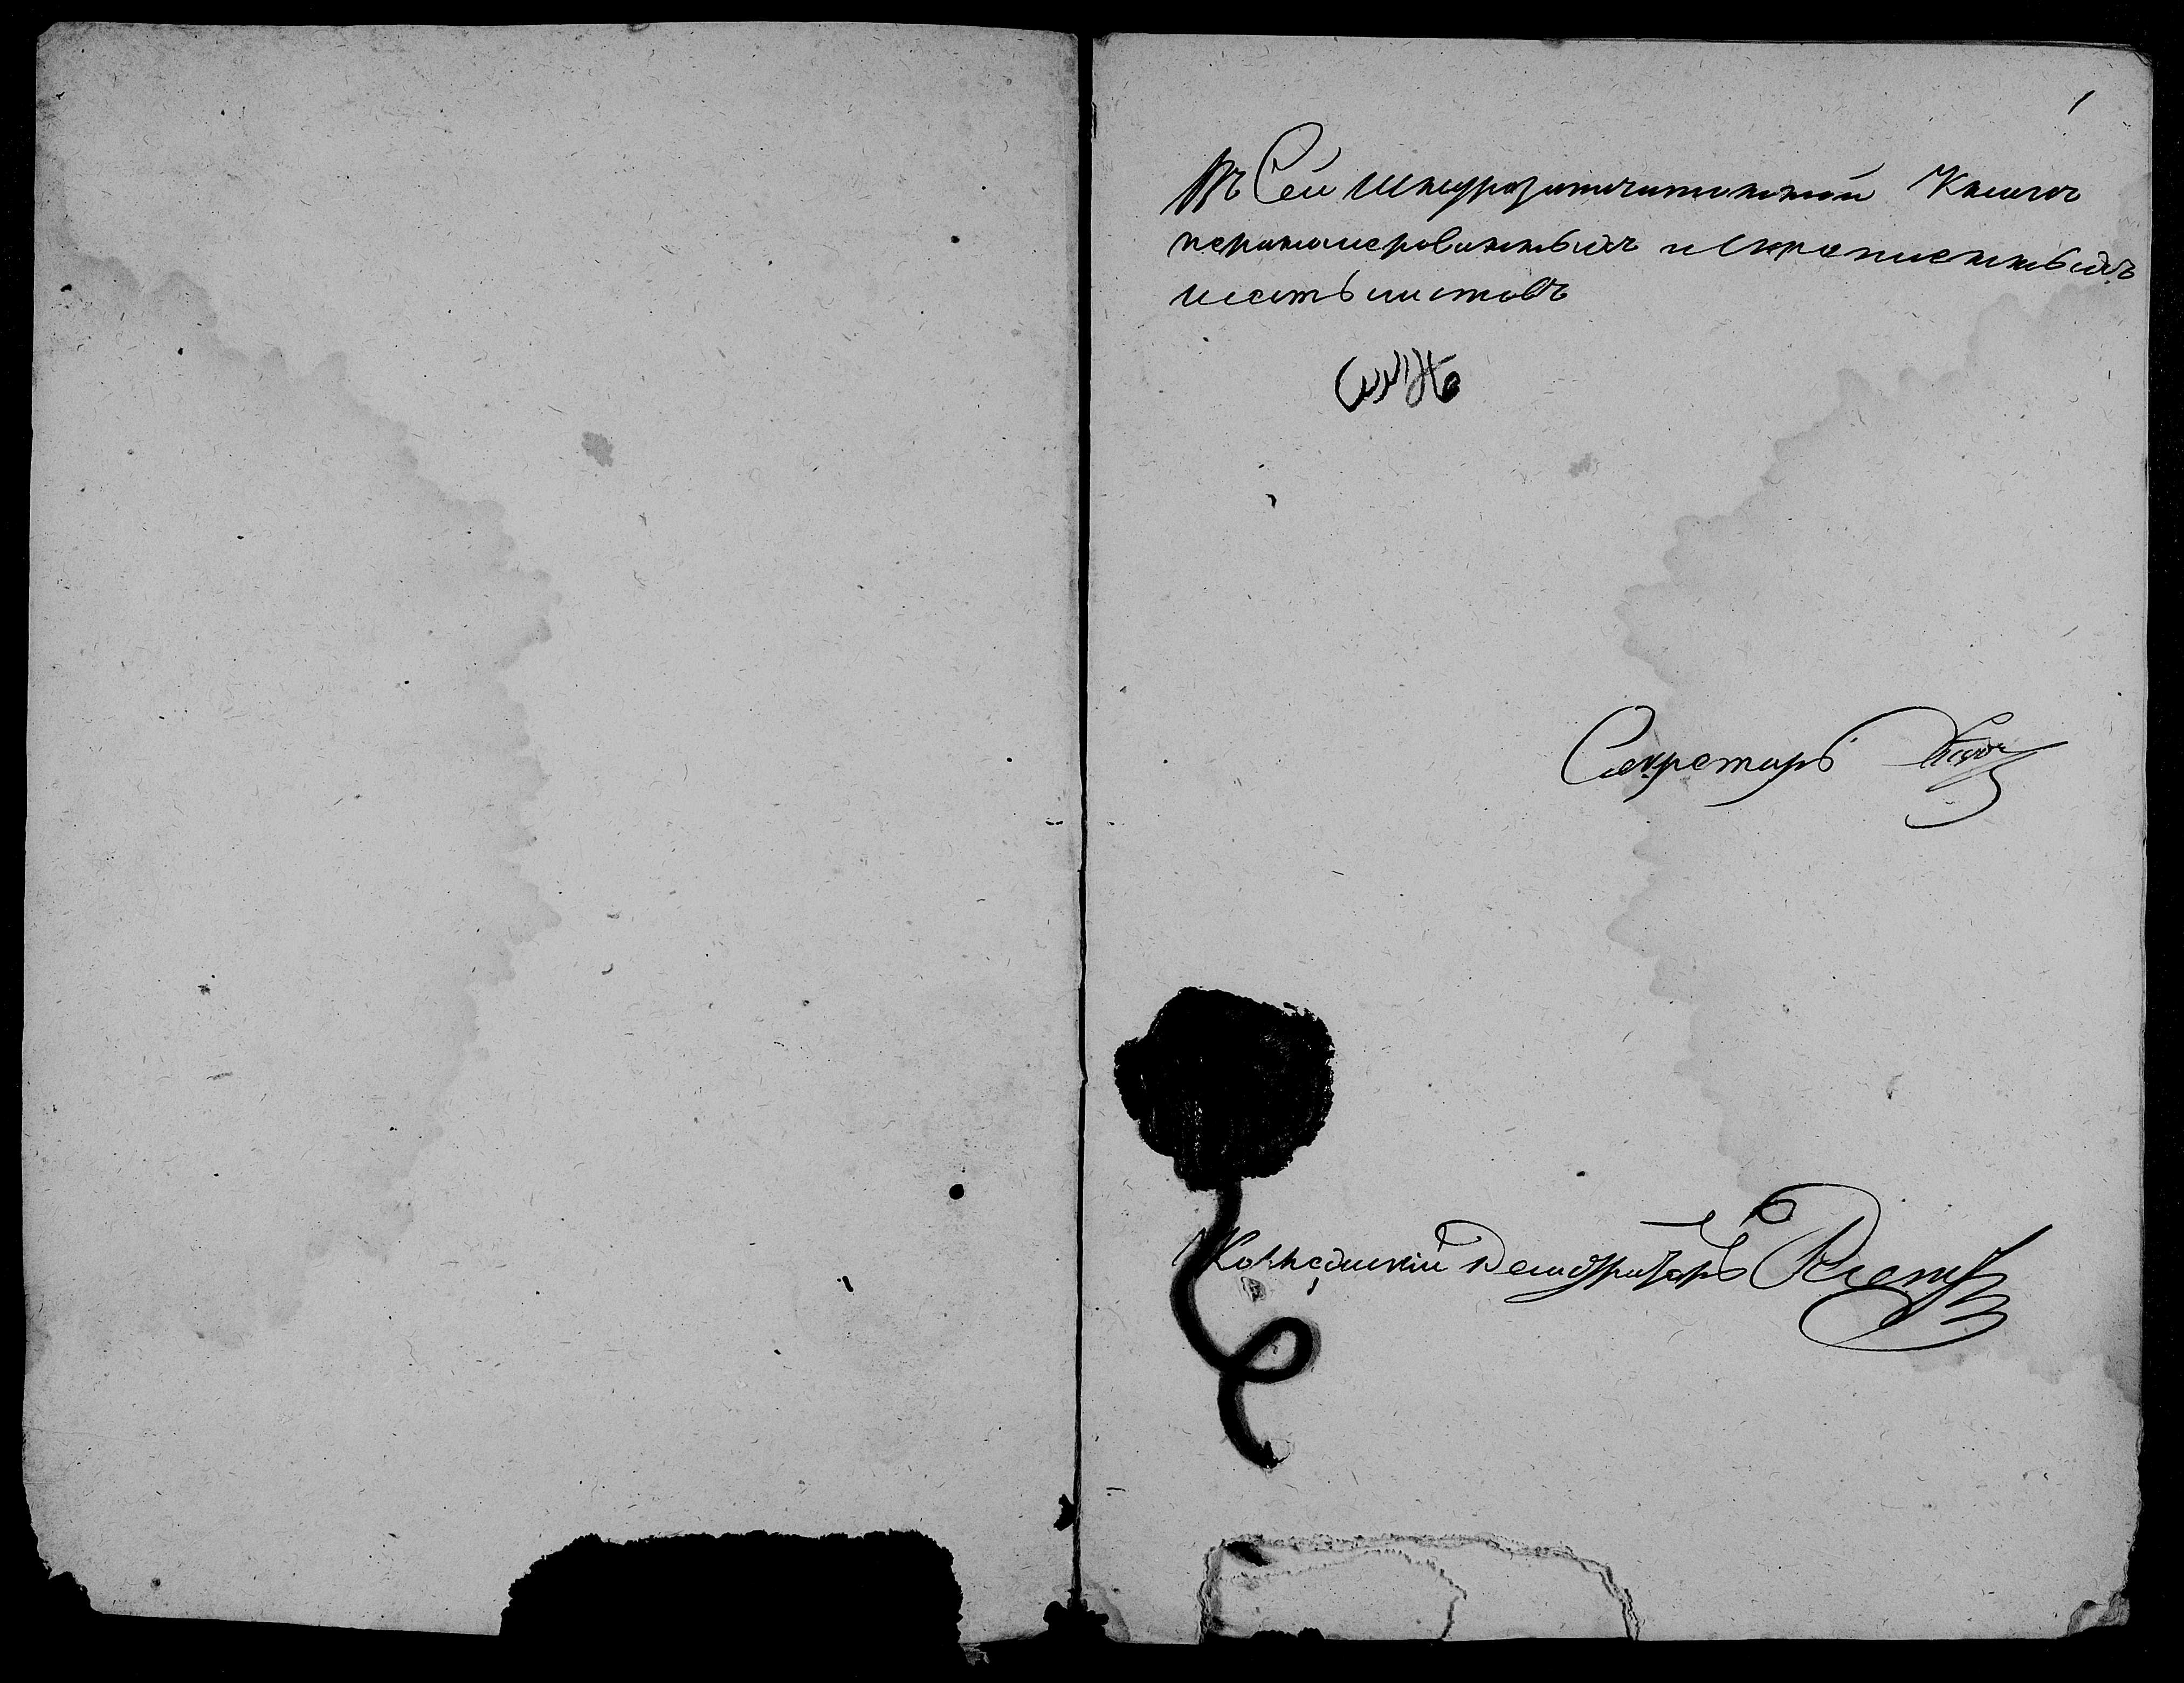 1
Въ Сей Шнурозапечатанной Книге
перенумерованныхъ и скрепленныхъ
шесть листовъ
Секретарь
Коллежский Регистраторъ